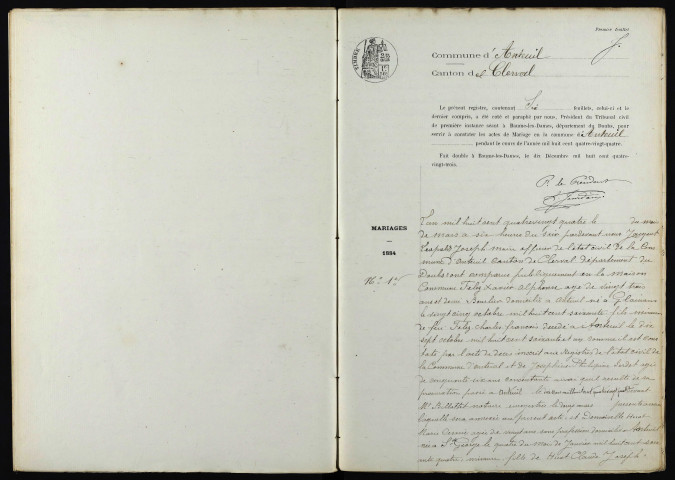 Premier feuillet
TIMBRE
Commune d'Anteuil
Canton de Clerval
Le présent registre, contenant Six feuillets, celui-ci et le
dernier compris, a été coté et paraphé par nous, Président du Tribunal civil
de première instance séant à Baume-les-Dames, département du Doubs, pour
servir à constater les actes de Mariage en la commune d'Anteuil
pendant le cours de l'année mil huit cent quatre-vingt-quatre.
Fait double à Baume-les-Dames, le dix Décembre mil huit cent quatre-
vingt-trois.
P. le Président
MARIAGES
1884
N° 1er
L'an mil huit cent quatrevingt quatre le du mois
de mars a six heures du soir pardevant nous
Léopold Joseph maire officier de l'état civil de la Com
mune d'Anteuil Canton de Clerval département du
Doubs sont comparus publiquement en la maison
Commune Xavier Alphonse age de vingt trois
ans et demi domicilié a Anteuil né a Glainans
le vingt cinq octobre mil huit cent soixante fils mineur
de feu Charles françois décédé a Anteuil le dix
sept octobre mil huit cent soixante et un comme il est cons
taté par l'acte de décès inscrit aux Registres de l'état civil de
la Commune d'Anteuil et de Joséphine agée
de cinquante six ans consentante ainsi qu'il résulte de sa
procuration passé a Anteuil devant
Me notaire
laquelle sera annexée au présent acte et Demoiselle Huot
Marie agée de vingt ans sans profession domiciliée a Anteuil
née a St George le quatre du mois de Janvier mil huit cent soix
ante quatre mineure fille de Huot Claude Joseph